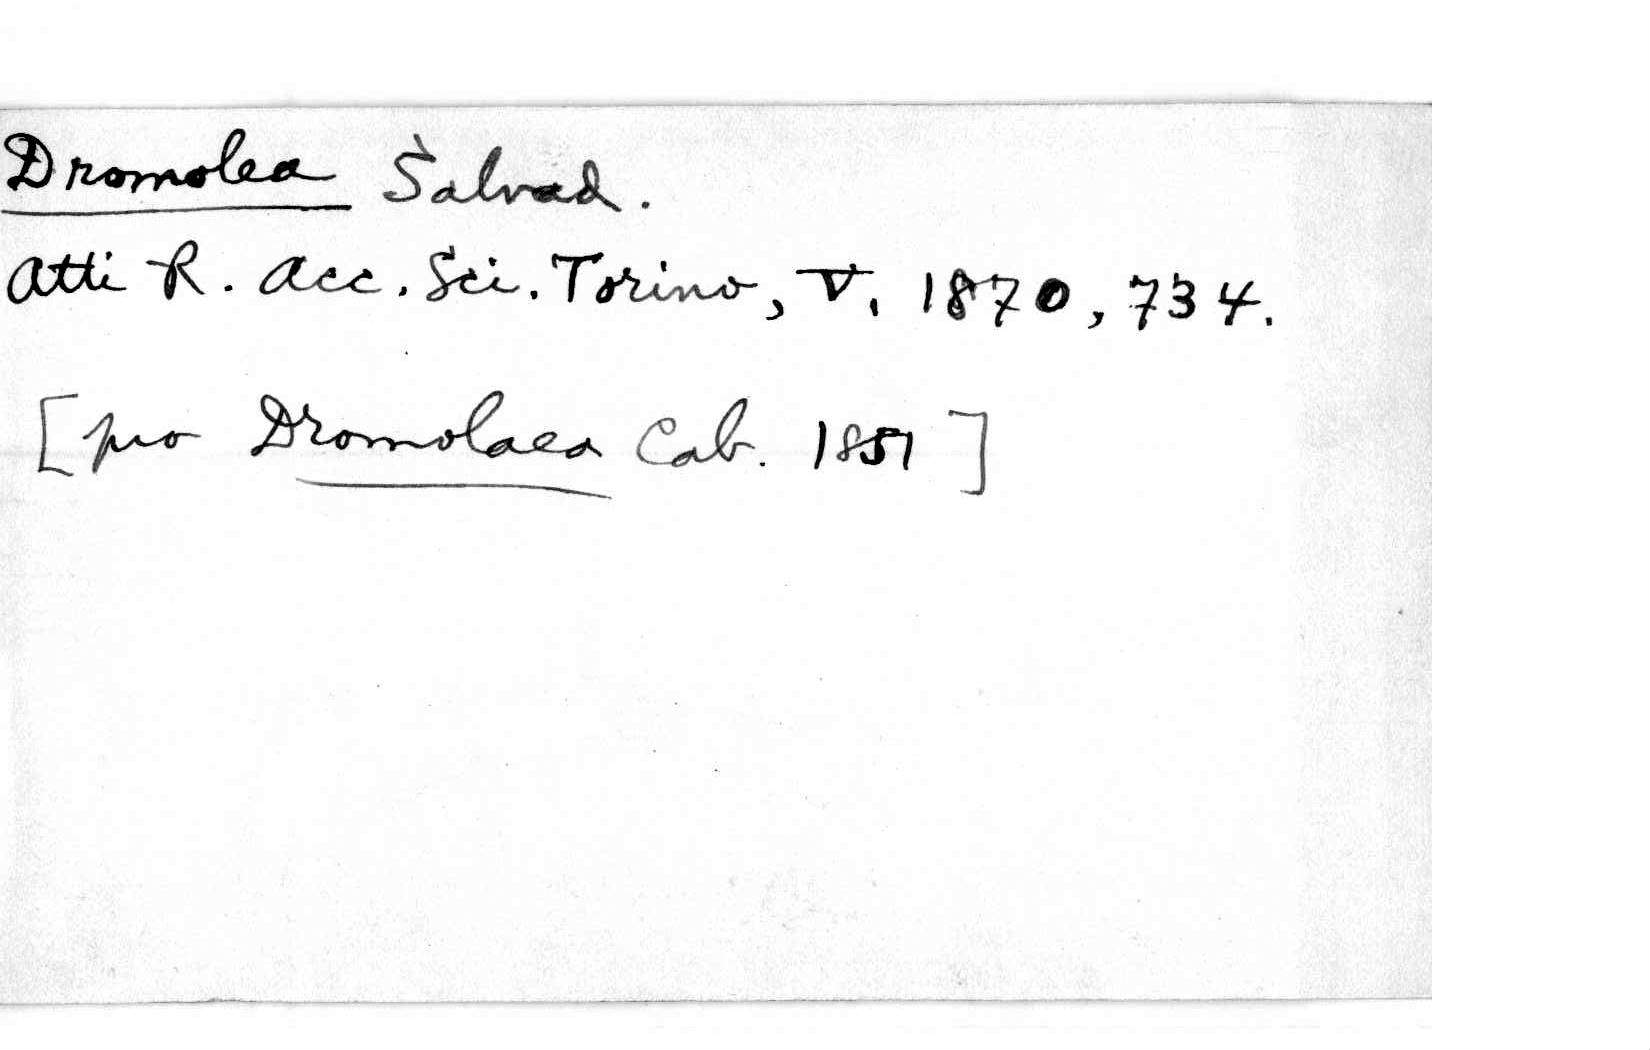 Dromolea Salvad.
Atti R. Acc. Sci. Torino, V, 1870, 734.
[pro Dromolaea Cab. 1851]